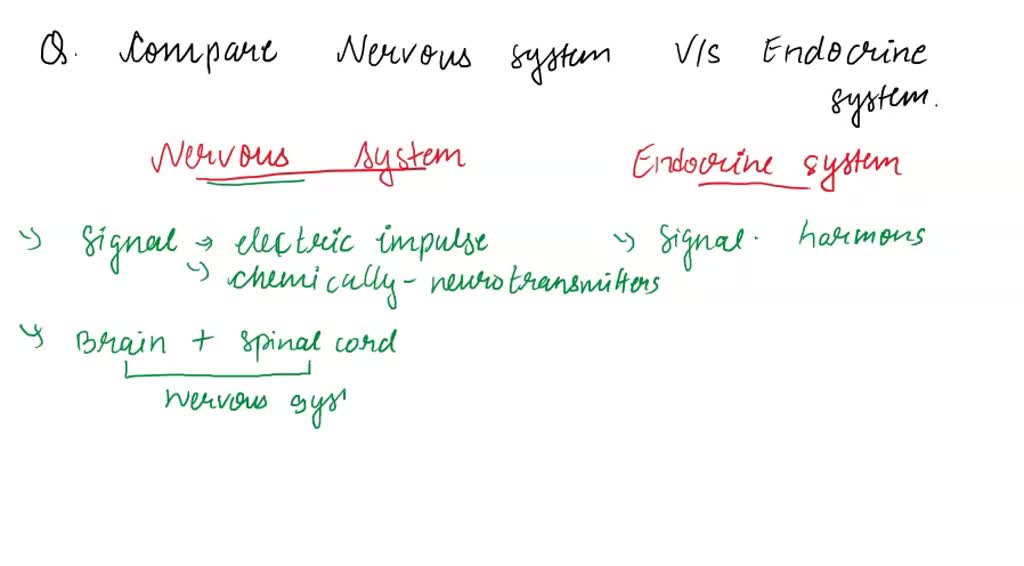 Q. Compare Nervous system V/s Endocrine
system.
Nervous system
Endocrine system
Signal → electric impulse
chemically - neurotransmitters
Signal. harmons
Brain + spinal cord
Nervous sys